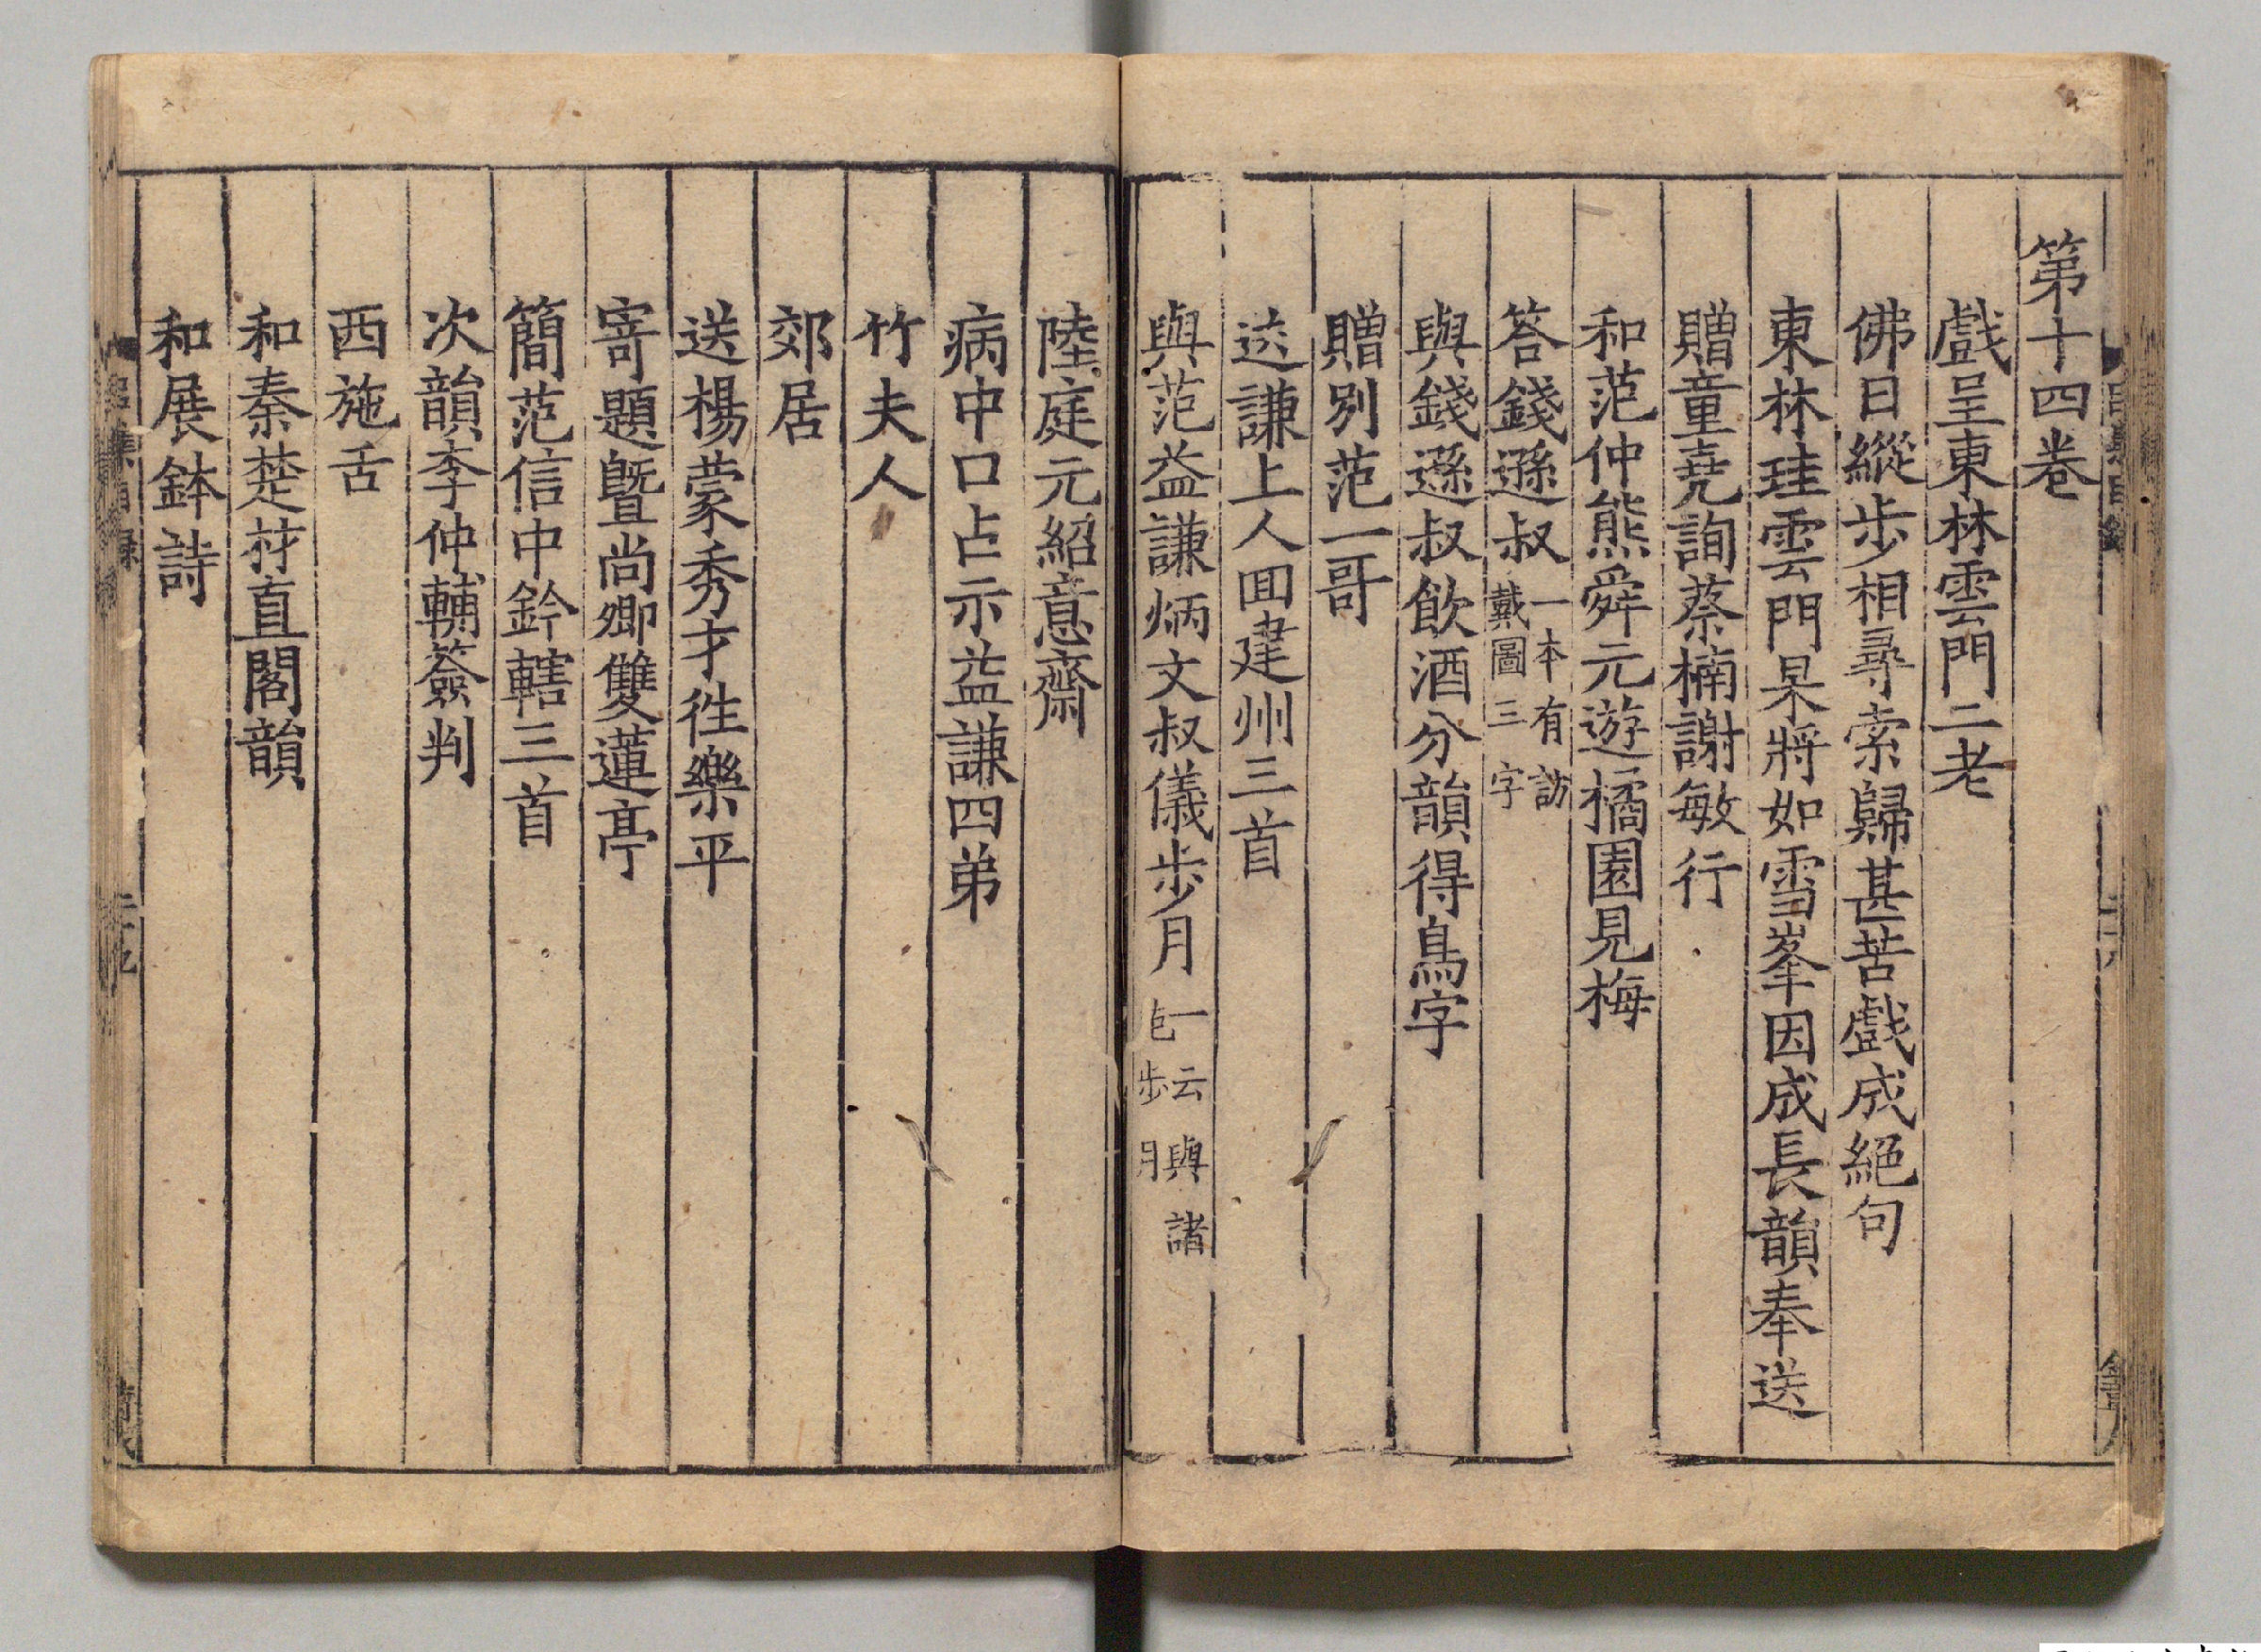 第十四卷
戲呈東林雲門二老
佛日縱步相尋索歸甚苦戲成絕句
東林珪雲門杲將如雪峯因成長韻奉送
贈童堯詢蔡楠謝敏行
和范仲熊舜元遊橘園見梅
答錢遜叔一本有訪戴圖三字
與錢遜叔飲酒分韻得鳥字
贈別范一哥
送謙上人囬建州三首
與范益謙炳文叔儀步月一云與諸色步月
陸庭元紹意齋
病中口占示益謙四弟
竹夫人
郊居
送楊蒙秀才徃樂平
寄題曁尚卿雙蓮亭
簡范信中鈐轄三首
次韻李仲輔簽判
西施舌
和秦楚材直閣韻
和展鉢詩